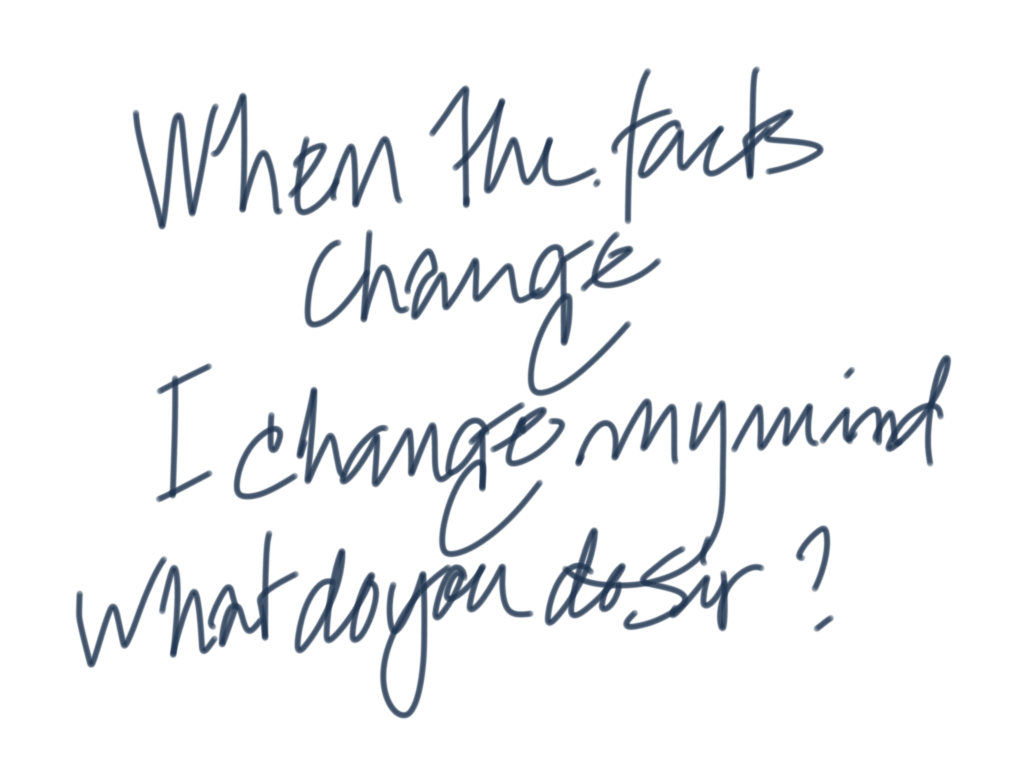 When the facts
change
I change my mind
what do you do sir?